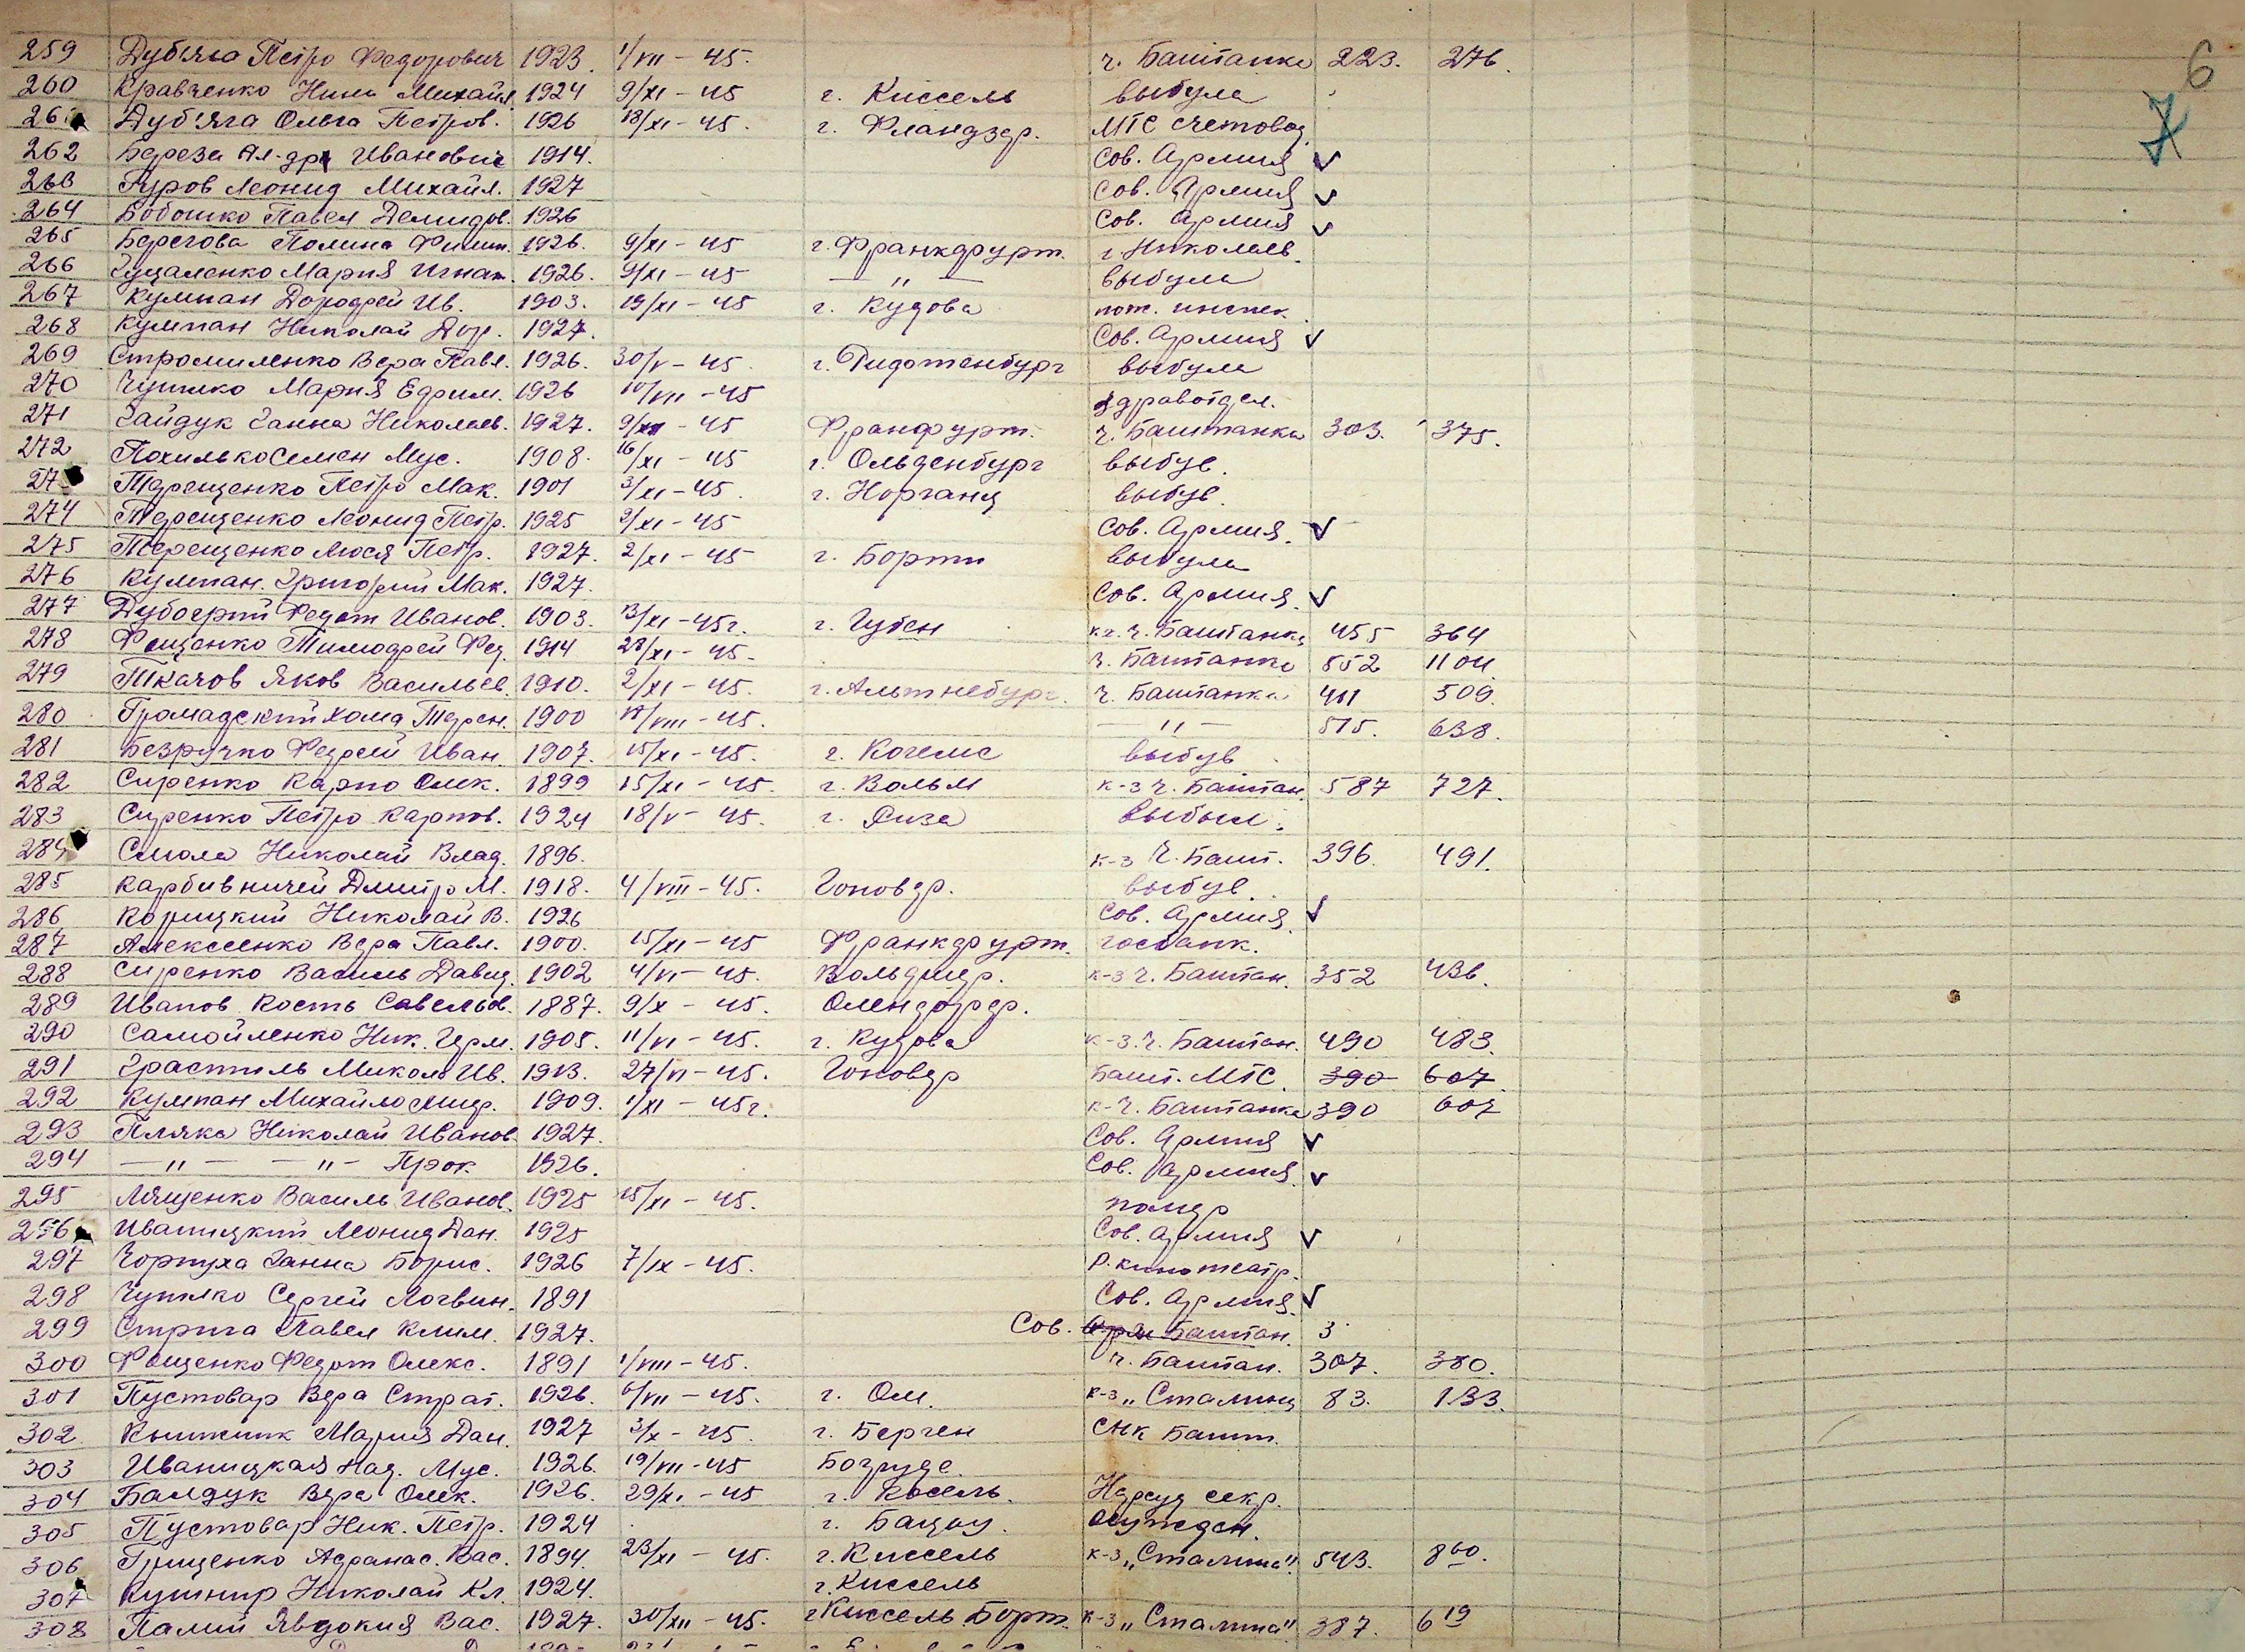 6
7
259 Дуб'яга Петро Федорович 1923. 1/VII - 45. ч. Баштанка 223. 276.
260 Кравченко Нина Михайл. 1924 9/XI - 45 г. Киссель выбула
261 Дуб'яга Ольга Петров. 1926 18/XI - 45. г. Фландзер. МТС счетовод
262 Береза Ал-др Иванович 1914. Сов. Армия ✓
263 Гуров Леонид Михайл. 1927 Сов. Армия ✓
264 Бобошко Павел Демидов. 1926 Сов. Армия ✓
265 Берегова Полина Филип. 1926. 9/XI - 45 г. Франкфурт. г. Николаев.
266 Гуцаленко Мария Игнат. 1926. 9/XI - 45 — " — выбула
267 Кулпан Дорофей Ив. 1903. 19/XI - 45 г. Кудова пож. инспек.
268 Кулпан Николай Дор. 1927. Сов. Армия ✓
269 Стромиленко Вера Павл. 1926. 30/V - 45. г. Рифтенбург выбула
270 Чупилко Мария Ефрим. 1926 10/VII - 45 здравотдел.
271 Гайдук Ганна Николаев. 1927. 9/XII - 45 Франфурт. ч. Баштанка 303. 375.
272 Похилько Семен Мус. 1908. 16/XI - 45 г. Ольденбург выбув.
27 Терещенко Петро Мак. 1901 3/XI - 45. г. Норганц выбув.
274 Терещенко Леонид Петр. 1925 2/XI - 45 Сов. Армия. ✓
275 Терещенко Люся Петр. 1927. 2/XI - 45 г. Борти выбула
276 Кулпан. Григорий Мак. 1927. Сов. Армия. ✓
277 Дубогрий Федот Иванов. 1903. 13/XI - 45г. г. Губен к-г. Ч. Баштанка 455 364
278 Фещенко Тимофей Фед. 1914 28/XI - 45. Ч. Баштанка 852 1104.
279 Ткачов Яков Васильев. 1910. 2/XI - 45. г. Альтнебург. Ч. Баштанка 411 509.
280 Громадский Хома Терен. 1900 17/VIII - 45. — " — 515. 638.
281 Безручко Федсей Иван. 1907. 15/XI - 45. г. Когемс выбув
282 Сиренко Карпо Олек. 1899 15/XI - 45. г. Вольм к-з Ч. Баштан. 587 727.
283 Сиренко Петро Карпов. 1924 18/V - 45. г. Риза выбыл.
284 Смола Николай Влад. 1896. к-з Ч. Башт. 396. 491.
285 Карбивничей Дмитро М. 1918. 4/VIII - 45. Гоновер. выбув.
286 Корицкий Николай В. 1926 Сов. Армия. ✓
287 Алексеенко Вера Павл. 1900. 15/XI - 45 Франкфурт. госбанк.
288 Сиренко Василь Давид. 1902 4/VI - 45. Вольдмер. к-з Ч. Баштан. 352 436.
289 Иванов Кость Савельов. 1887. 9/X - 45. Олендорф.
290 Самойленко Ник. Ерм. 1905. 11/VI - 45. г. Кудова к-з. Ч. Баштан. 490 483.
291 Грастиль Микола Ив. 1913. 27/VI - 45. Гоновер Башт. МТС. 390 607.
292 Кулпан Михайло Мир. 1909. 1/XI - 45г. к-Ч. Баштанка 390 607
293 Пляка Николай Иванов. 1927. Сов. Армия ✓
294 — " — — " — Прок. 1926. Сов. Армия. ✓
295 Лященко Василь Иванов. 1925 15/XI - 45. помер
296 Иваницкий Леонид Дан. 1925 Сов. Армия ✓
297 Чорпуха Ганна Борис. 1926 7/IX - 45. Р. кинотеатр.
298 Чупилко Сергей Логвин. 1891 Сов. Армия. ✓
299 Стрига Павел Клим. 1927. Сов. Арм Баштан. 3
300 Фещенко Федот Олекс. 1891 1/VIII - 45. Ч. Баштан. 307. 380.
301 Пустовар Вера Страт. 1926. 6/VII - 45. г. Ом. к-з „Сталинц 83. 133.
302 Мария Дан. 1927 3/X - 45. г. Берген СНК Башт.
303 Иваницкая Над. Мус. 1926. 19/VII - 45 Богруде.
304 Балдук Вера Олек. 1926. 29/XI - 45 г. Косель. Нарсуд секр.
305 Пустовар Ник. Петр. 1924 г. Бацоу. осужден.
306 Грищенко Афанас. Вас. 1894. 23/XI - 45. г. Киссель к-з „Сталина" 543. 860.
307 Кушнир Николай Кл. 1924. г. Киссель
308 Палий Явдокия Вас. 1927. 30/XII - 45. г. Киссель Борт. к-з „Сталина" 387. 619